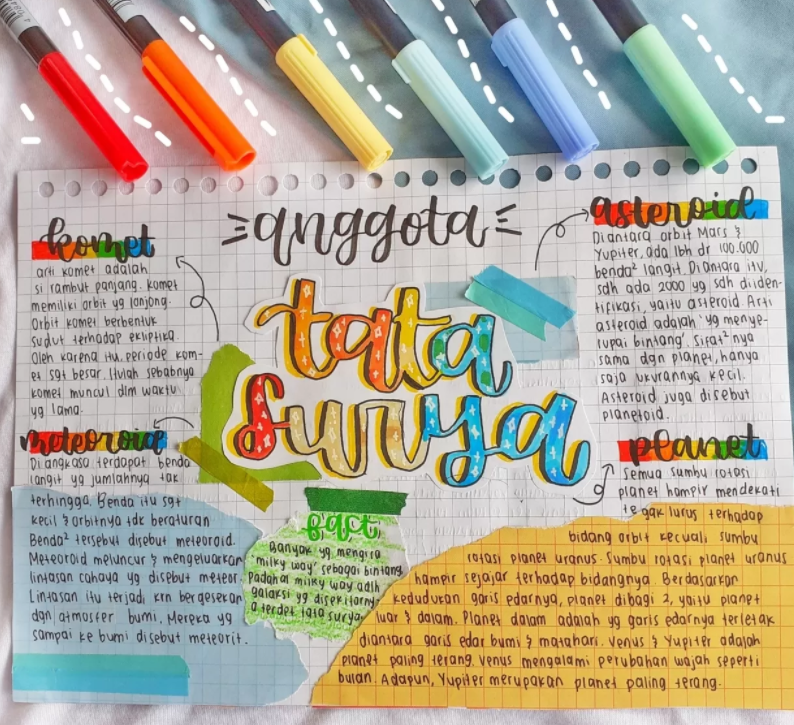 anggota
tata
surya
komet
arti komet adalah
si rambut panjang. komet
memiliki orbit yg lonjong.
Orbit komet berbentuk
sudut terhadap ekliptika.
Oleh karena itu, periode kom-
et sgt besar. Itulah sebabnya
komet muncul dlm waktu
yg lama.
meteoroid
Di angkasa terdapat benda
langit yg jumlahnya tak
terhingga. Benda itu sgt
kecil & orbitnya tdk beraturan
Benda² tersebut disebut meteoroid.
Meteoroid meluncur & mengeluarkan
lintasan cahaya yg disebut meteor.
Lintasan itu terjadi krn bergesekan
dgn atmosfer bumi. Mereka yg
sampai ke bumi disebut meteorit.
fact
Banyak yg mengira
'milky way' sebagai bintang
Padahal milky way adlh
galaksi yg disekitarny-
a terdpt tata surya
asteroid
Di antara orbit Mars &
Yupiter, ada lbh dr 100.000
benda² langit. Di antara itu,
sdh ada 2000 yg sdh diiden-
tifikasi, yaitu asteroid. Arti
asteroid adalah 'yg menye-
rupai bintang'. Sifat² nya
sama dgn planet, hanya
saja ukurannya kecil.
Asteroid juga disebut
planetoid.
planet
Semua sumbu rotasi
planet hampir mendekati
tegak lurus terhadap
bidang orbit kecuali sumbu
rotasi planet uranus. Sumbu rotasi planet uranus
hampir sejajar terhadap bidangnya. Berdasarkan
kedudukan garis edarnya, planet dibagi 2, yaitu planet
luar & dalam. Planet dalam adalah yg garis edarnya terletak
diantara garis edar bumi & matahari. Venus & Yupiter adalah
planet paling terang. Venus mengalami perubahan wajah seperti
bulan. Adapun, Yupiter merupakan planet paling terang.